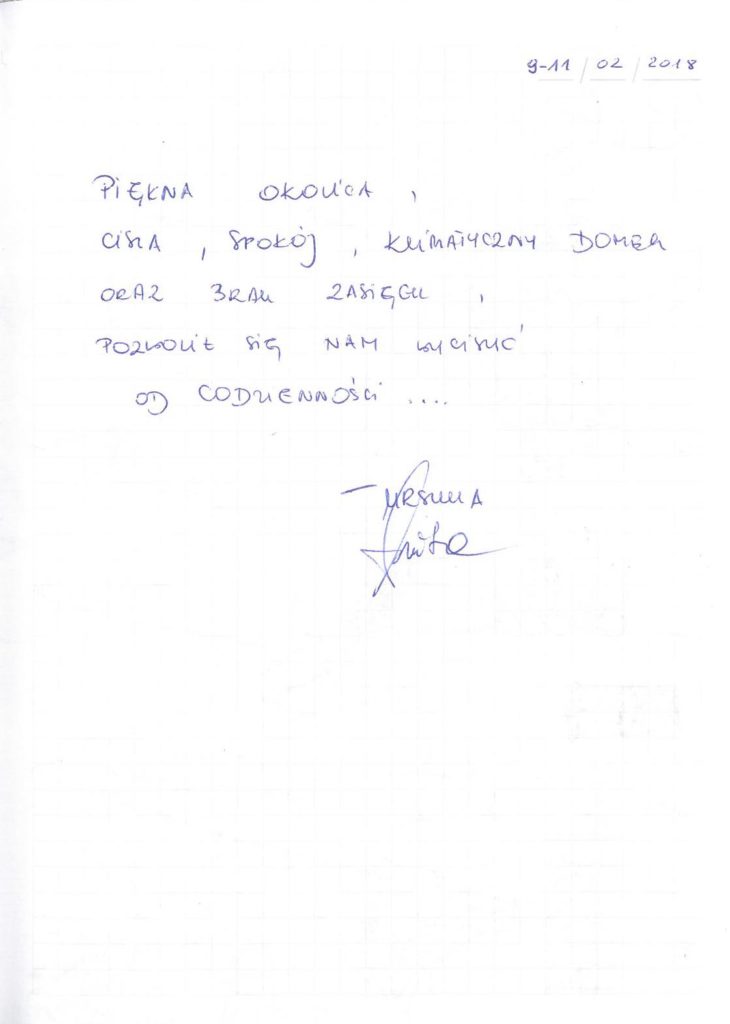 9-11/02/2018
PIĘKNA OKOLICA,
CISZA, SPOKÓJ, KLIMATYCZNY DOMEK
ORAZ BRAK ZASIĘGU,
POZWOLIŁ SIĘ NAM WYCISZYĆ
OD CODZIENNOŚCI ....